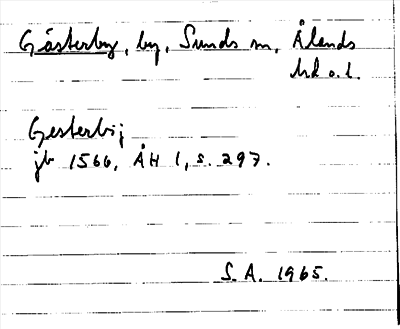 Gästerby, by, Sunds sn, Ålands
hd o. l.
Gesterbij
jb 1566, ÅH 1, s. 297.
S. A. 1965.